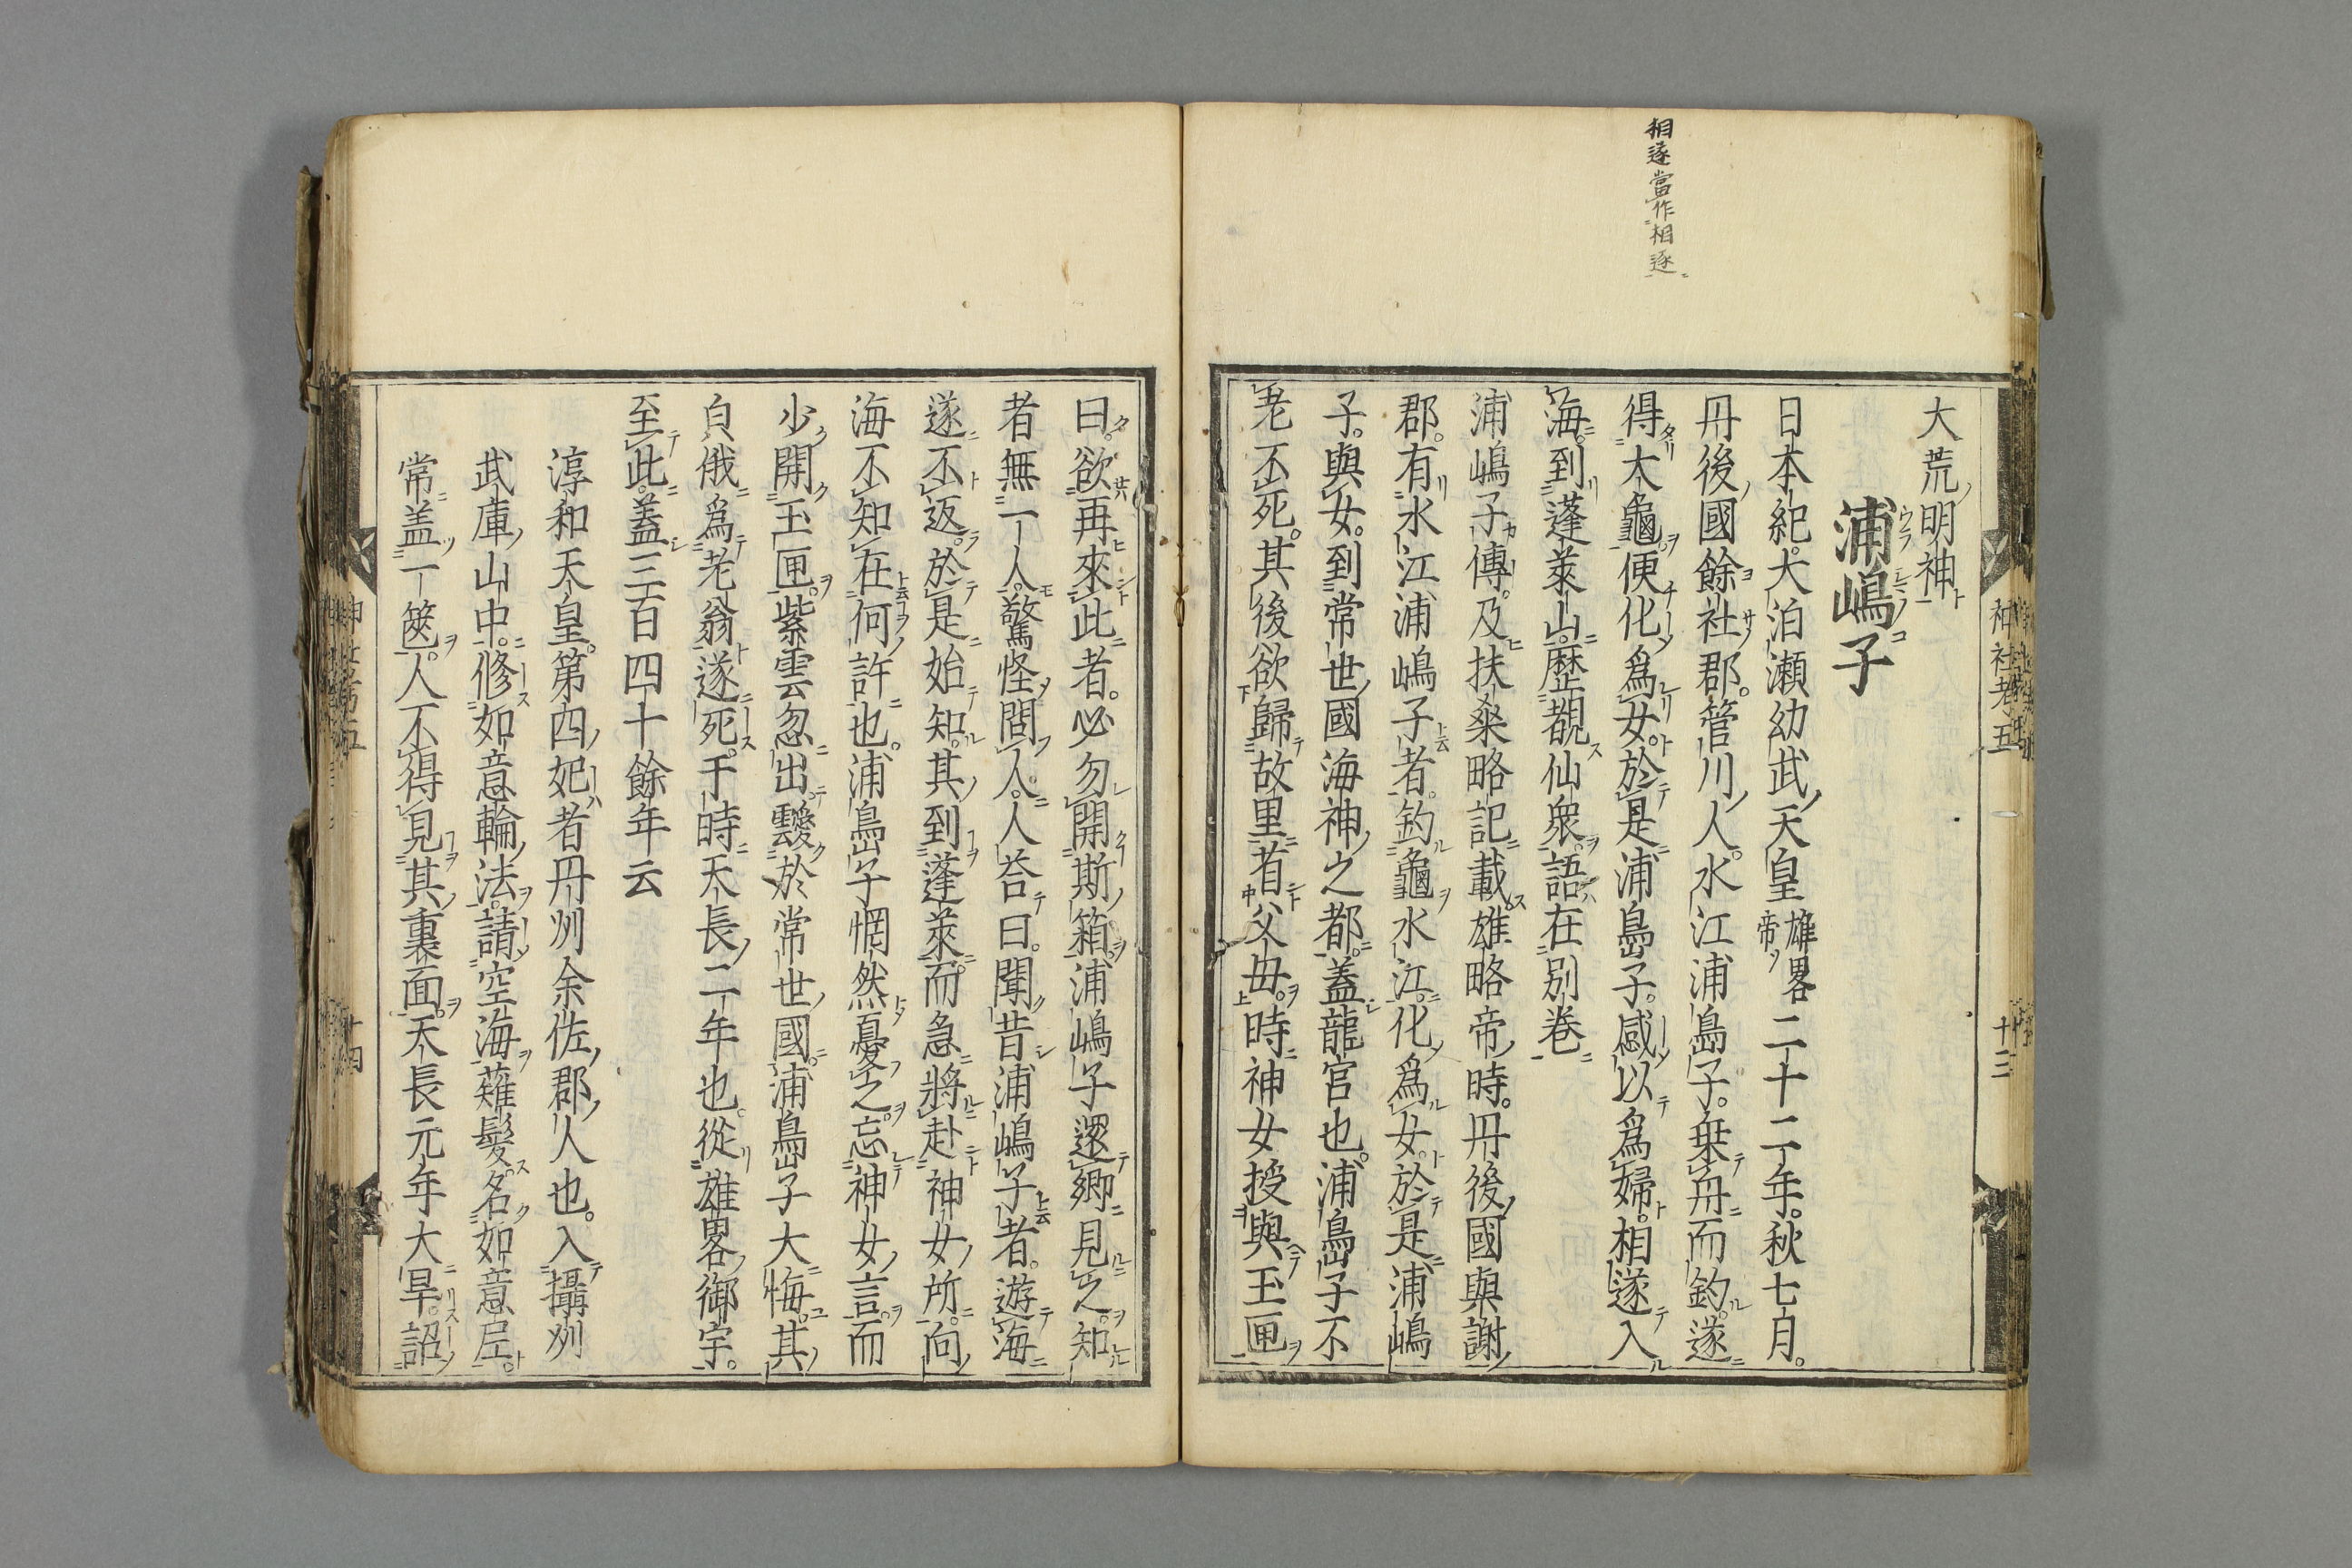 相遂當作相逐
大荒明神
浦嶋子
日本紀大泊瀬幼武天皇雄畧帝二十二年秋七月
丹後國餘社郡管川人水江浦島子乗舟而釣遂
得大龜便化爲女於是浦島子感以爲婦相遂入
海到蓬萊山歷覩仙衆語在別巻
浦嶋子傳及扶桒略記載雄略帝時丹後國與謝
郡有水江浦嶋子者釣龜水江化爲女於是浦嶋
子與女到常世國海神之都蓋龍宮也浦島子不
老不死其後欲歸故里省父母時神女授與玉匣
曰欲再來此者必勿開斯箱浦嶋子還鄉見之知
者無一人驚怪問人人荅曰聞昔浦嶋子者遊海
遂不返於是始知其到蓬萊而急將赴神女所向
海不知在何許也浦島子惘然憂之忘神女言而
少開玉匣紫雲忽出靉於常世國浦島子大悔其
白俄爲老翁遂死于時天長二年也從雄畧御宇
至此蓋三百四十餘年云
淳和天皇第四妃者丹州余佐郡人也入攝州
武庫山中修如意輪法請空海薙髪名如意尼
常盖一篋人不得見其裏面天長元年大旱詔
神社考五
十三